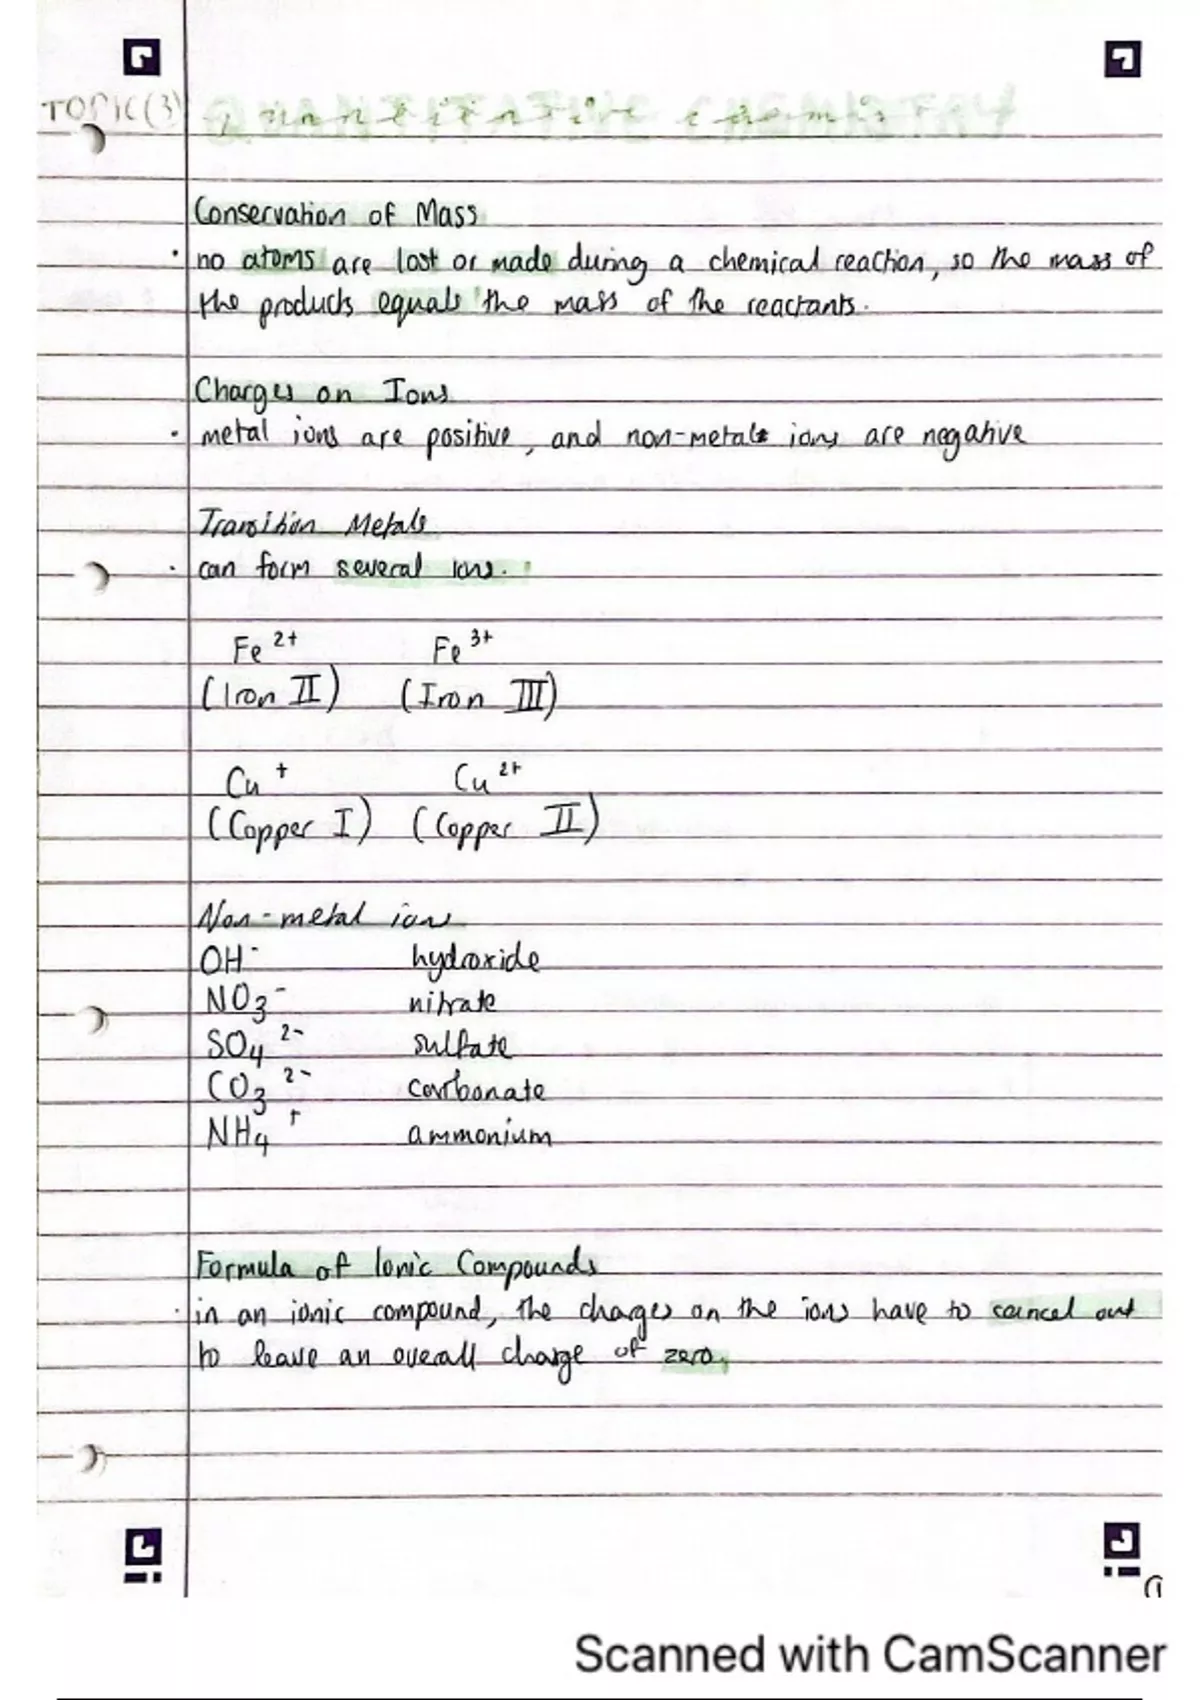 TOPIC(3) QUANTITATIVE CHEMISTRY
Conservation of Mass
· no atoms are lost or made during a chemical reaction, so the mass of
the products equals the mass of the reactants.
Charges on Ions
· metal ions are positive, and non-metals ions are negative
Transition Metals
· can form several ions.
Fe²⁺ Fe³⁺
(Iron II) (Iron III)
Cu⁺ Cu²⁺
(Copper I) (Copper II)
Non-metal ions
OH⁻ hydroxide
NO₃⁻ nitrate
SO₄²⁻ sulfate
CO₃²⁻ carbonate
NH₄⁺ ammonium
Formula of Ionic Compounds
· in an ionic compound, the charges on the ions have to cancel out
to leave an overall charge of zero.
(1
Scanned with CamScanner